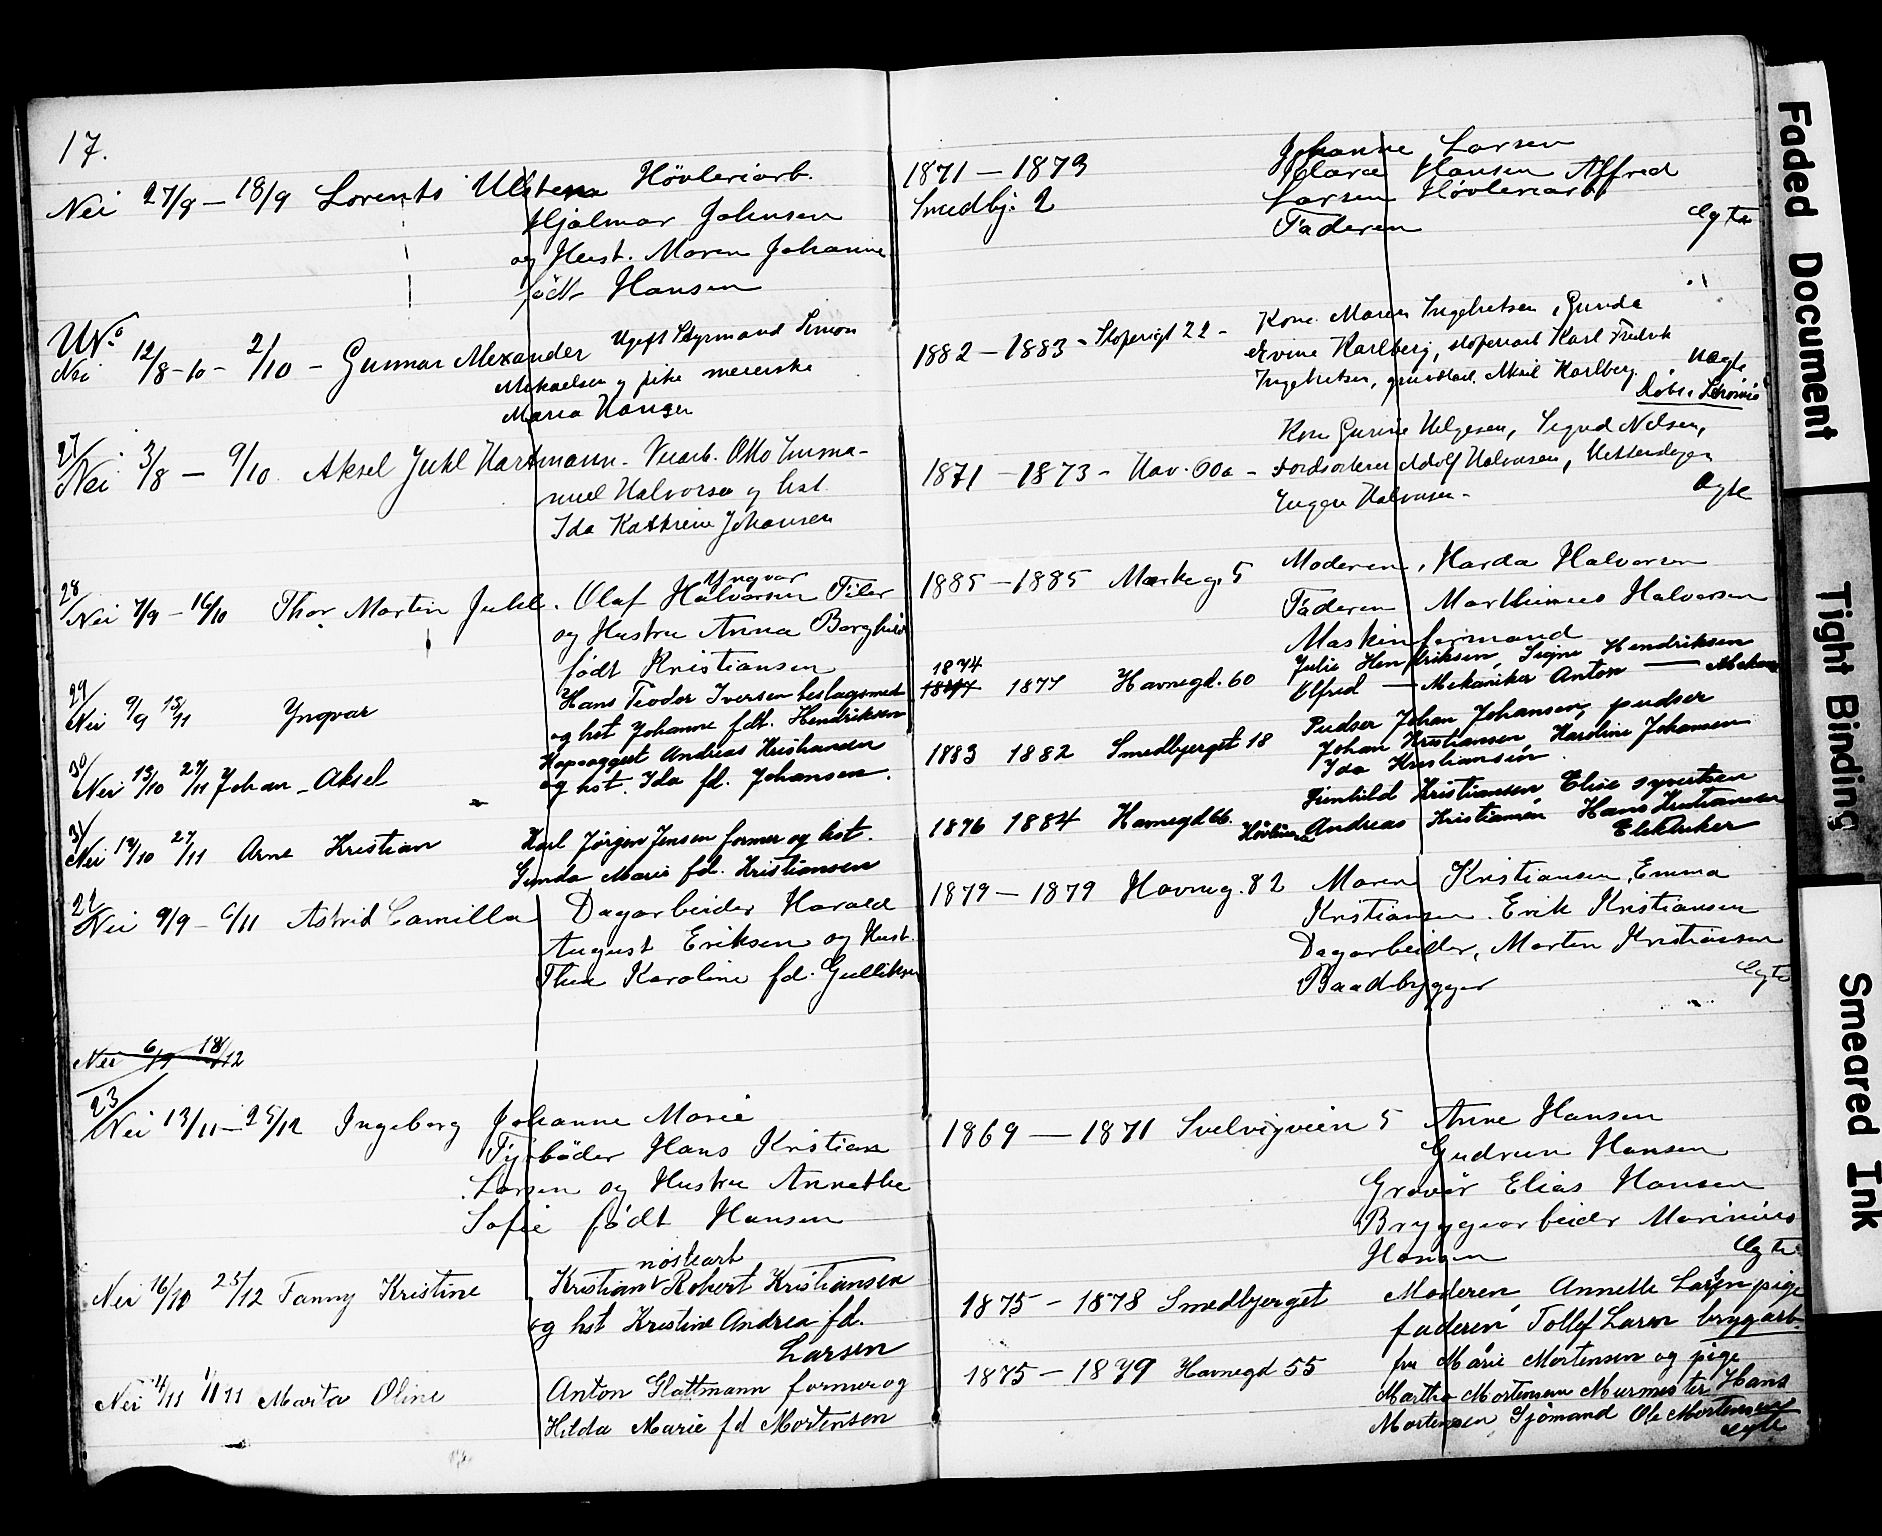 17.
Nei 27/8 – 18/9 Lorents Ulstena Høvleriarb.
Hjalmar Johnsen
og Hust. Maren Johanne
født Hansen
1871 – 1873
Smedbj. 2
Johanne Larsen
Clara Hansen Alfred
Larsen Høvleriarb
Faderen
Egte
Nei 12/8 - 10 - 2/10 – Gunnar Alexander Ugift Styrmand Simon
Mikaelsen og pike meierske
Maria Hanger
1882 – 1883 - Støperigt 22 -
Kone Maren Ingebretsen, Gunda
Karlberg, støperiarb Karl Fredrik
Ingebretsen, Aksel Karlberg.
Uægte
27/ Nei 3/8 – 9/10 Aksel Juhl Hartmann - Otto Emma-
nuel Halvorsen og hst.
Ida Kathrine Johansen
1871 – 1873 - Hav. 60a -
Kone Gurine Helgesen, Sigrud Nelsen,
Adolf Halvorsen,
Halvorsen -
Ægte
28/ Nei 7/9 – 16/10 Thor Martin Juhl. Olaf Yngvar Halvorsen Filer
og Hustru Anna Borghild
født Kristiansen
1885 – 1885 Markeg. 5
Moderen, Harda Halvorsen
Faderen Marthinius Halvorsen
Maskinformand
29/ Nei 9/9 15/11 Yngvar
Hans Teodor Iversen beslagsmed
og hst Johanne fdt. Hendriksen
1874
1877 Havnegd. 60
Julie Hendriksen, Signe Hendriksen
Alfred — Mekaniker Anton —
30/ Nei 13/10 27/11 Johan Aksel
Andreas Kristiansen
og hst. Ida fd. Johansen.
1883 1882 Smedbjerget 18
Pudser Johan Johansen, pudser
Johan Kristiansen Karoline Johansen
Ida Kristiansen
31/ Nei 14/10 27/11 Arne Kristian
Karl Jørgen Jensen former og hst.
Gunda Marie fd. Kristiansen
1876 1884 Havnegd 66.
Kristiansen Elise Syvertsen
Andreas Kristiansen Hans Kristiansen
Elektriker
22/ Nei 9/9 – 6/11 Astrid Camilla
Dagarbeider Harald
August Eriksen og Hust.
Thea Karoline fd. Gulliksen
1879 – 1879 Havneg. 82
Maren Kristiansen, Emma
Kristiansen. Erik Kristiansen
Dagarbeider, Morten Kristiansen
Baadbygger
Egte
Nei 6/9 18/12
23/ Nei 13/11 – 25/12 Ingeborg Johanne Marie
Fyrbøder Hans Kristian
Larsen og Hustru Annethe
Sofie født Hansen
1869 — 1871 Svelvigveien 5
Anne Hansen
Gudrun Hansen
Gravør Elias Hansen
Bryggearbeider Marinius
Hansen
Egte
Nei 16/10 25/12 Fanny Kristine
Kristian Robert Kristiansen
og hst Kristine Andrea fd.
Larsen
1875 – 1878 Smedbjerget
Moderen Annette Larsen pige
faderen Tollef Larsen brygarb.
Nei 4/11 Marta Oline
Anton Glattmann former og
Hilda Marie fd Mortensen
1875 – 1879 Havnegd 55
fru Marie Mortensen og pige
Martha Mortensen Murmester Hans
Mortensen Sjømand Ole Mortensen
Egte
Faded Document
Tight Binding
Smeared Ink